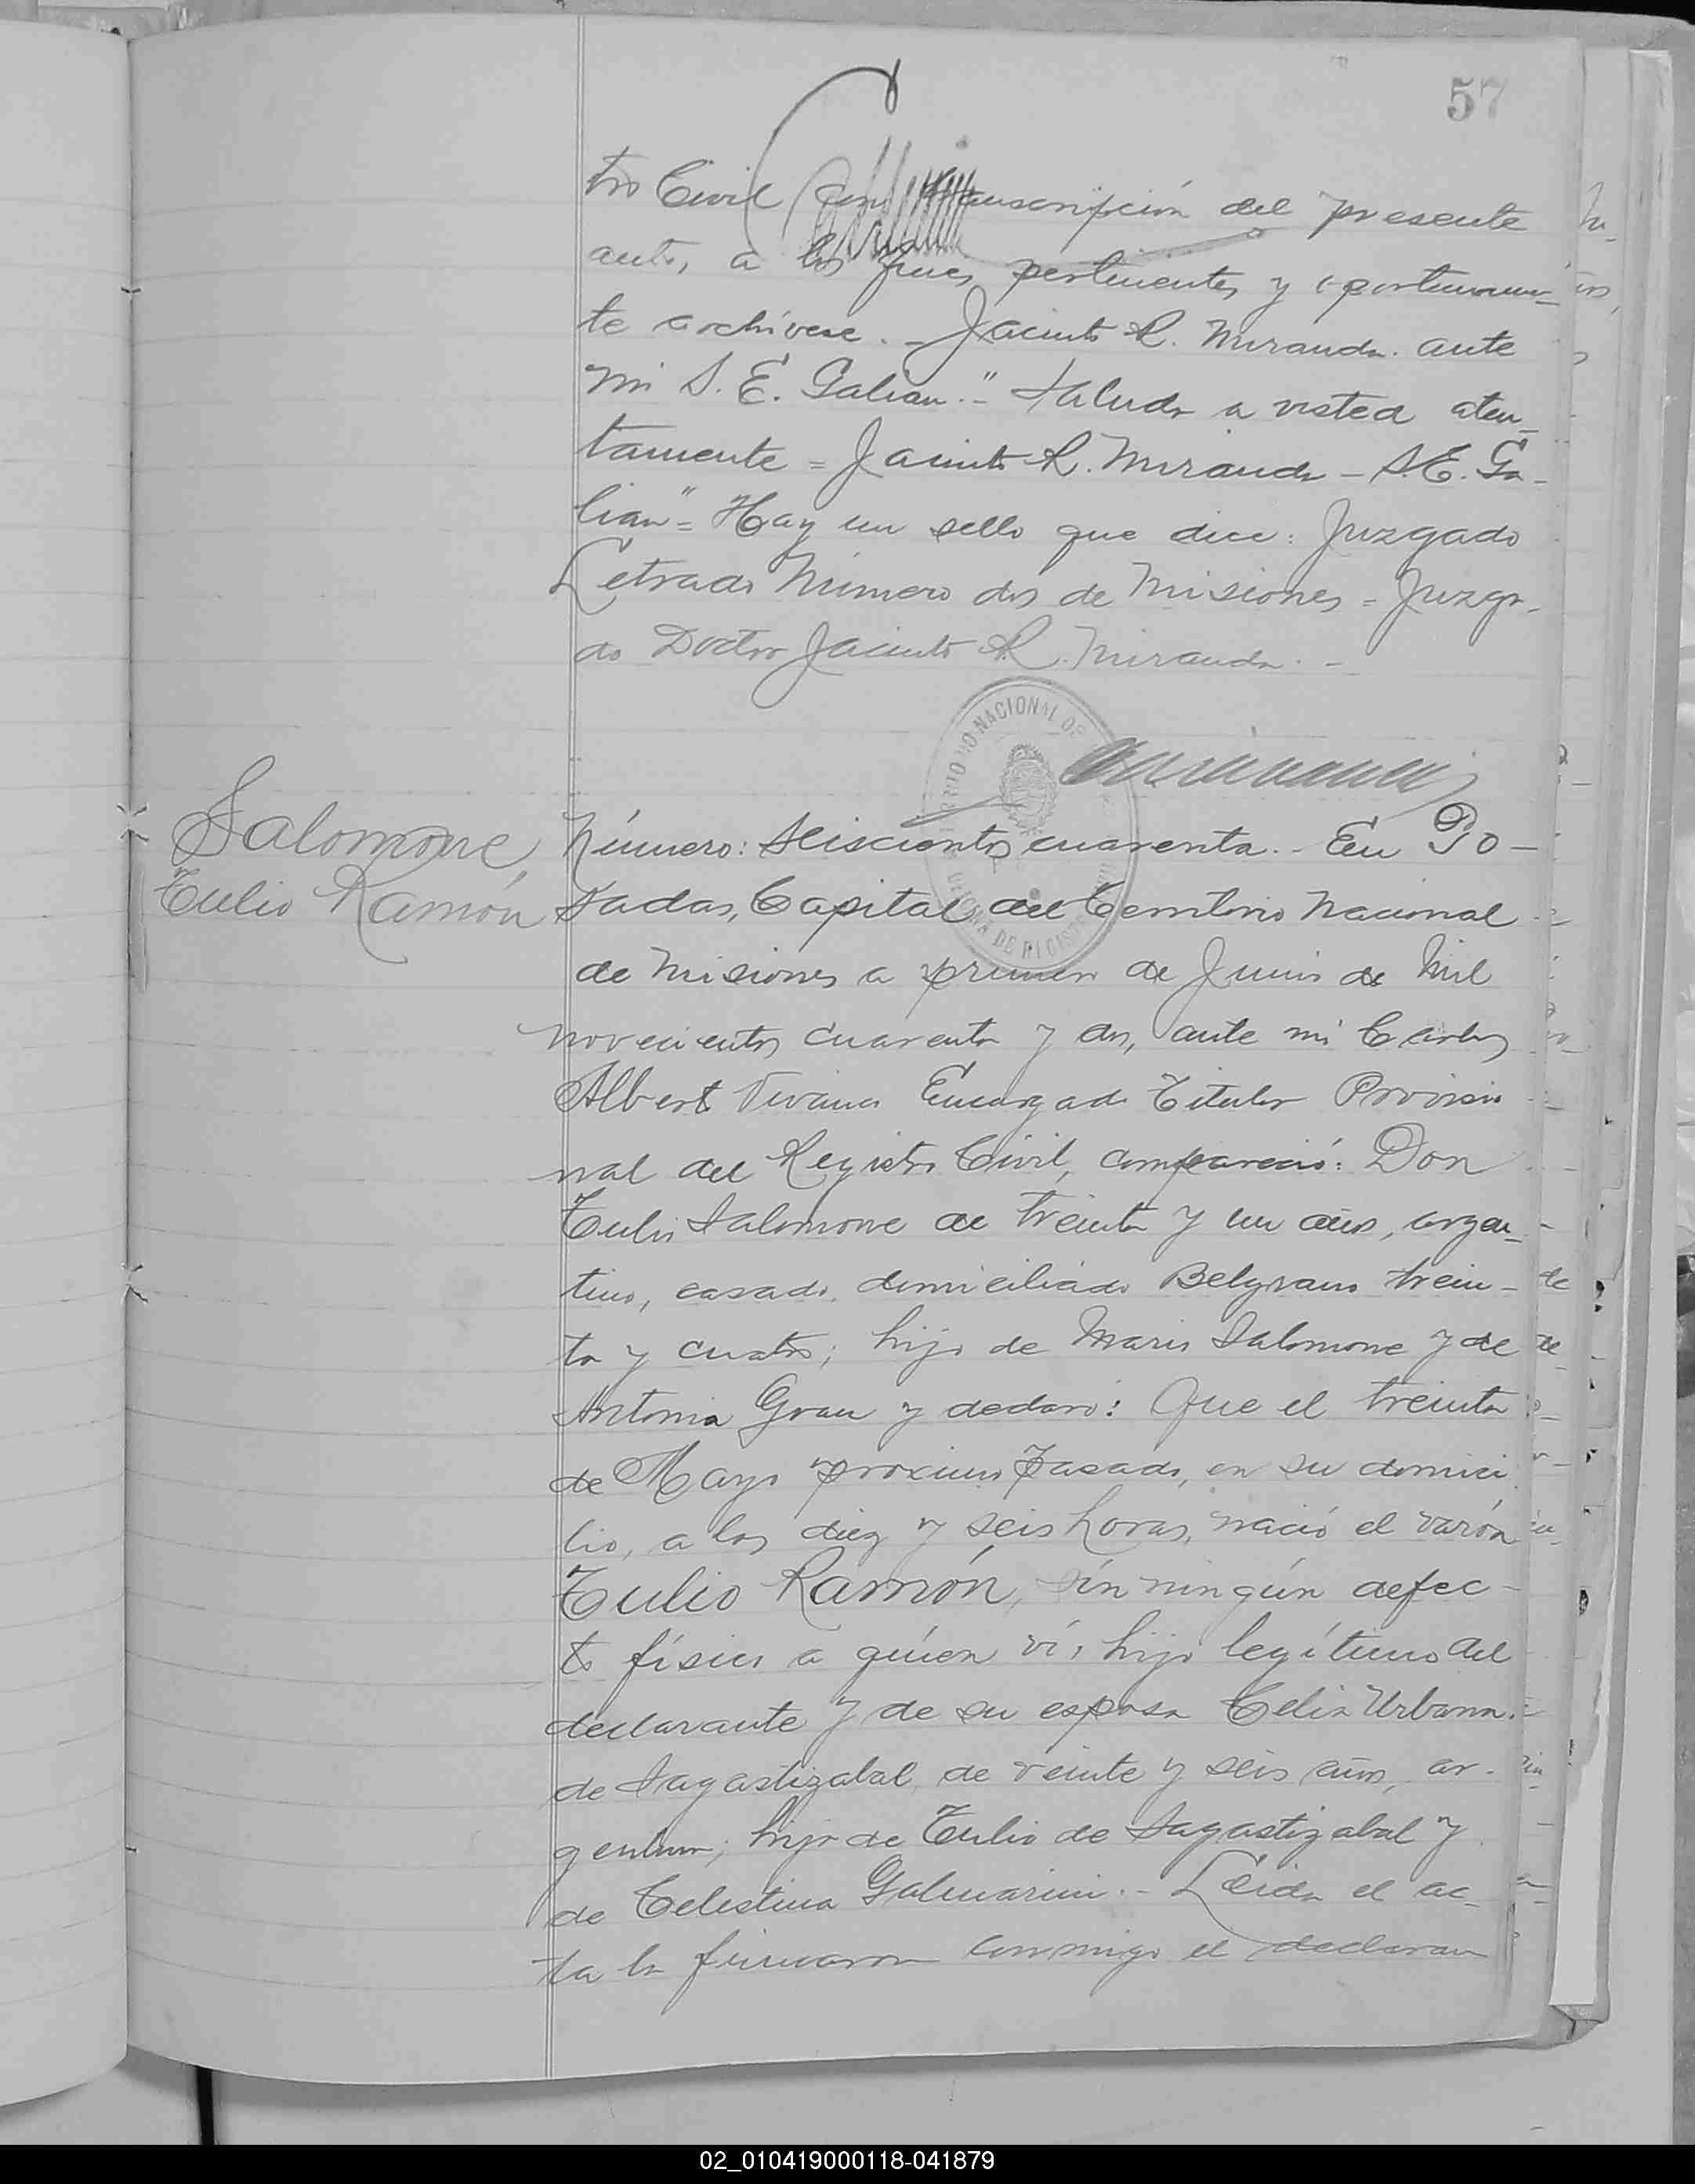 57
tro Civil con transcripción del presente
auto, a los fines pertinentes y oportunamen-
te archívese.- Jacinto R. Miranda. ante
mi S. E. Galian."- Saluda a usted aten-
tamente = Jacinto R. Miranda - S. E. Ga-
lian" = Hay un sello que dice: Juzgado
Letrado Número dos de Misiones = Juzga-
do Doctor Jacinto R. Miranda.-
NACIONAL DE
Salomone,
Tulio Ramón
Número: Seiscientos cuarenta.- En Po-
sadas, Capital del Territorio Nacional
de Misiones a primero de Junio de Mil
novecientos cuarenta y dos, ante mi Carlos
Alberto Encargado Titular Proviso
nal del Registro Civil, compareció: Don
Tulio Salomone de treinta y un años, argen-
tino, casado, domiciliado Belgrano trein-
ta y cuatro; hijo de Mario Salomone y de
Antonia Grau y declaró: Que el treinta
de Mayo próximo pasado, en su domici
lio, a las diez y seis horas, nació el varón
Tulio Ramón, sin ningún defec-
to físico a quien ví, hijo legítimo del
declarante y de su esposa Celia Urbana
de Sagastizabal, de veinte y seis años, ar-
gentina; hija de Tulio de Sagastizabal y
de Celestina Galmarini.- Leida el ac-
ta la firmaron conmigo el declaran
02_010419000118-041879